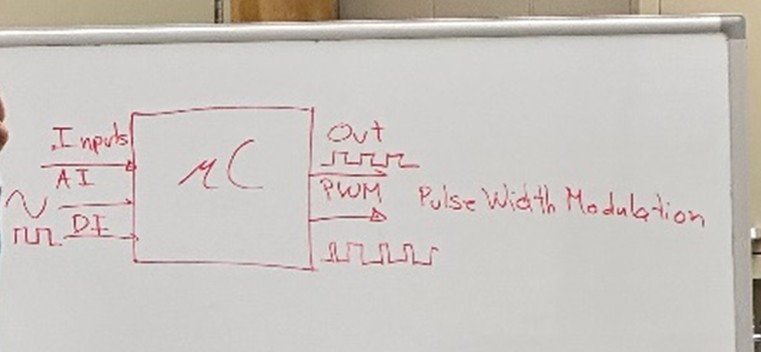 Inputs
AI
DI
μC
Out
PWM
Pulse Width Modulation